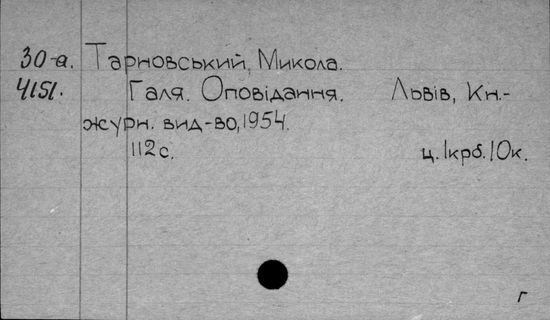 30-а. Тарновський, Микола.
4151. Галя. Оповідання. Львів, Кн.-
журн. вид-во, 1954.
112с. ц. 1крб. 10к.
г